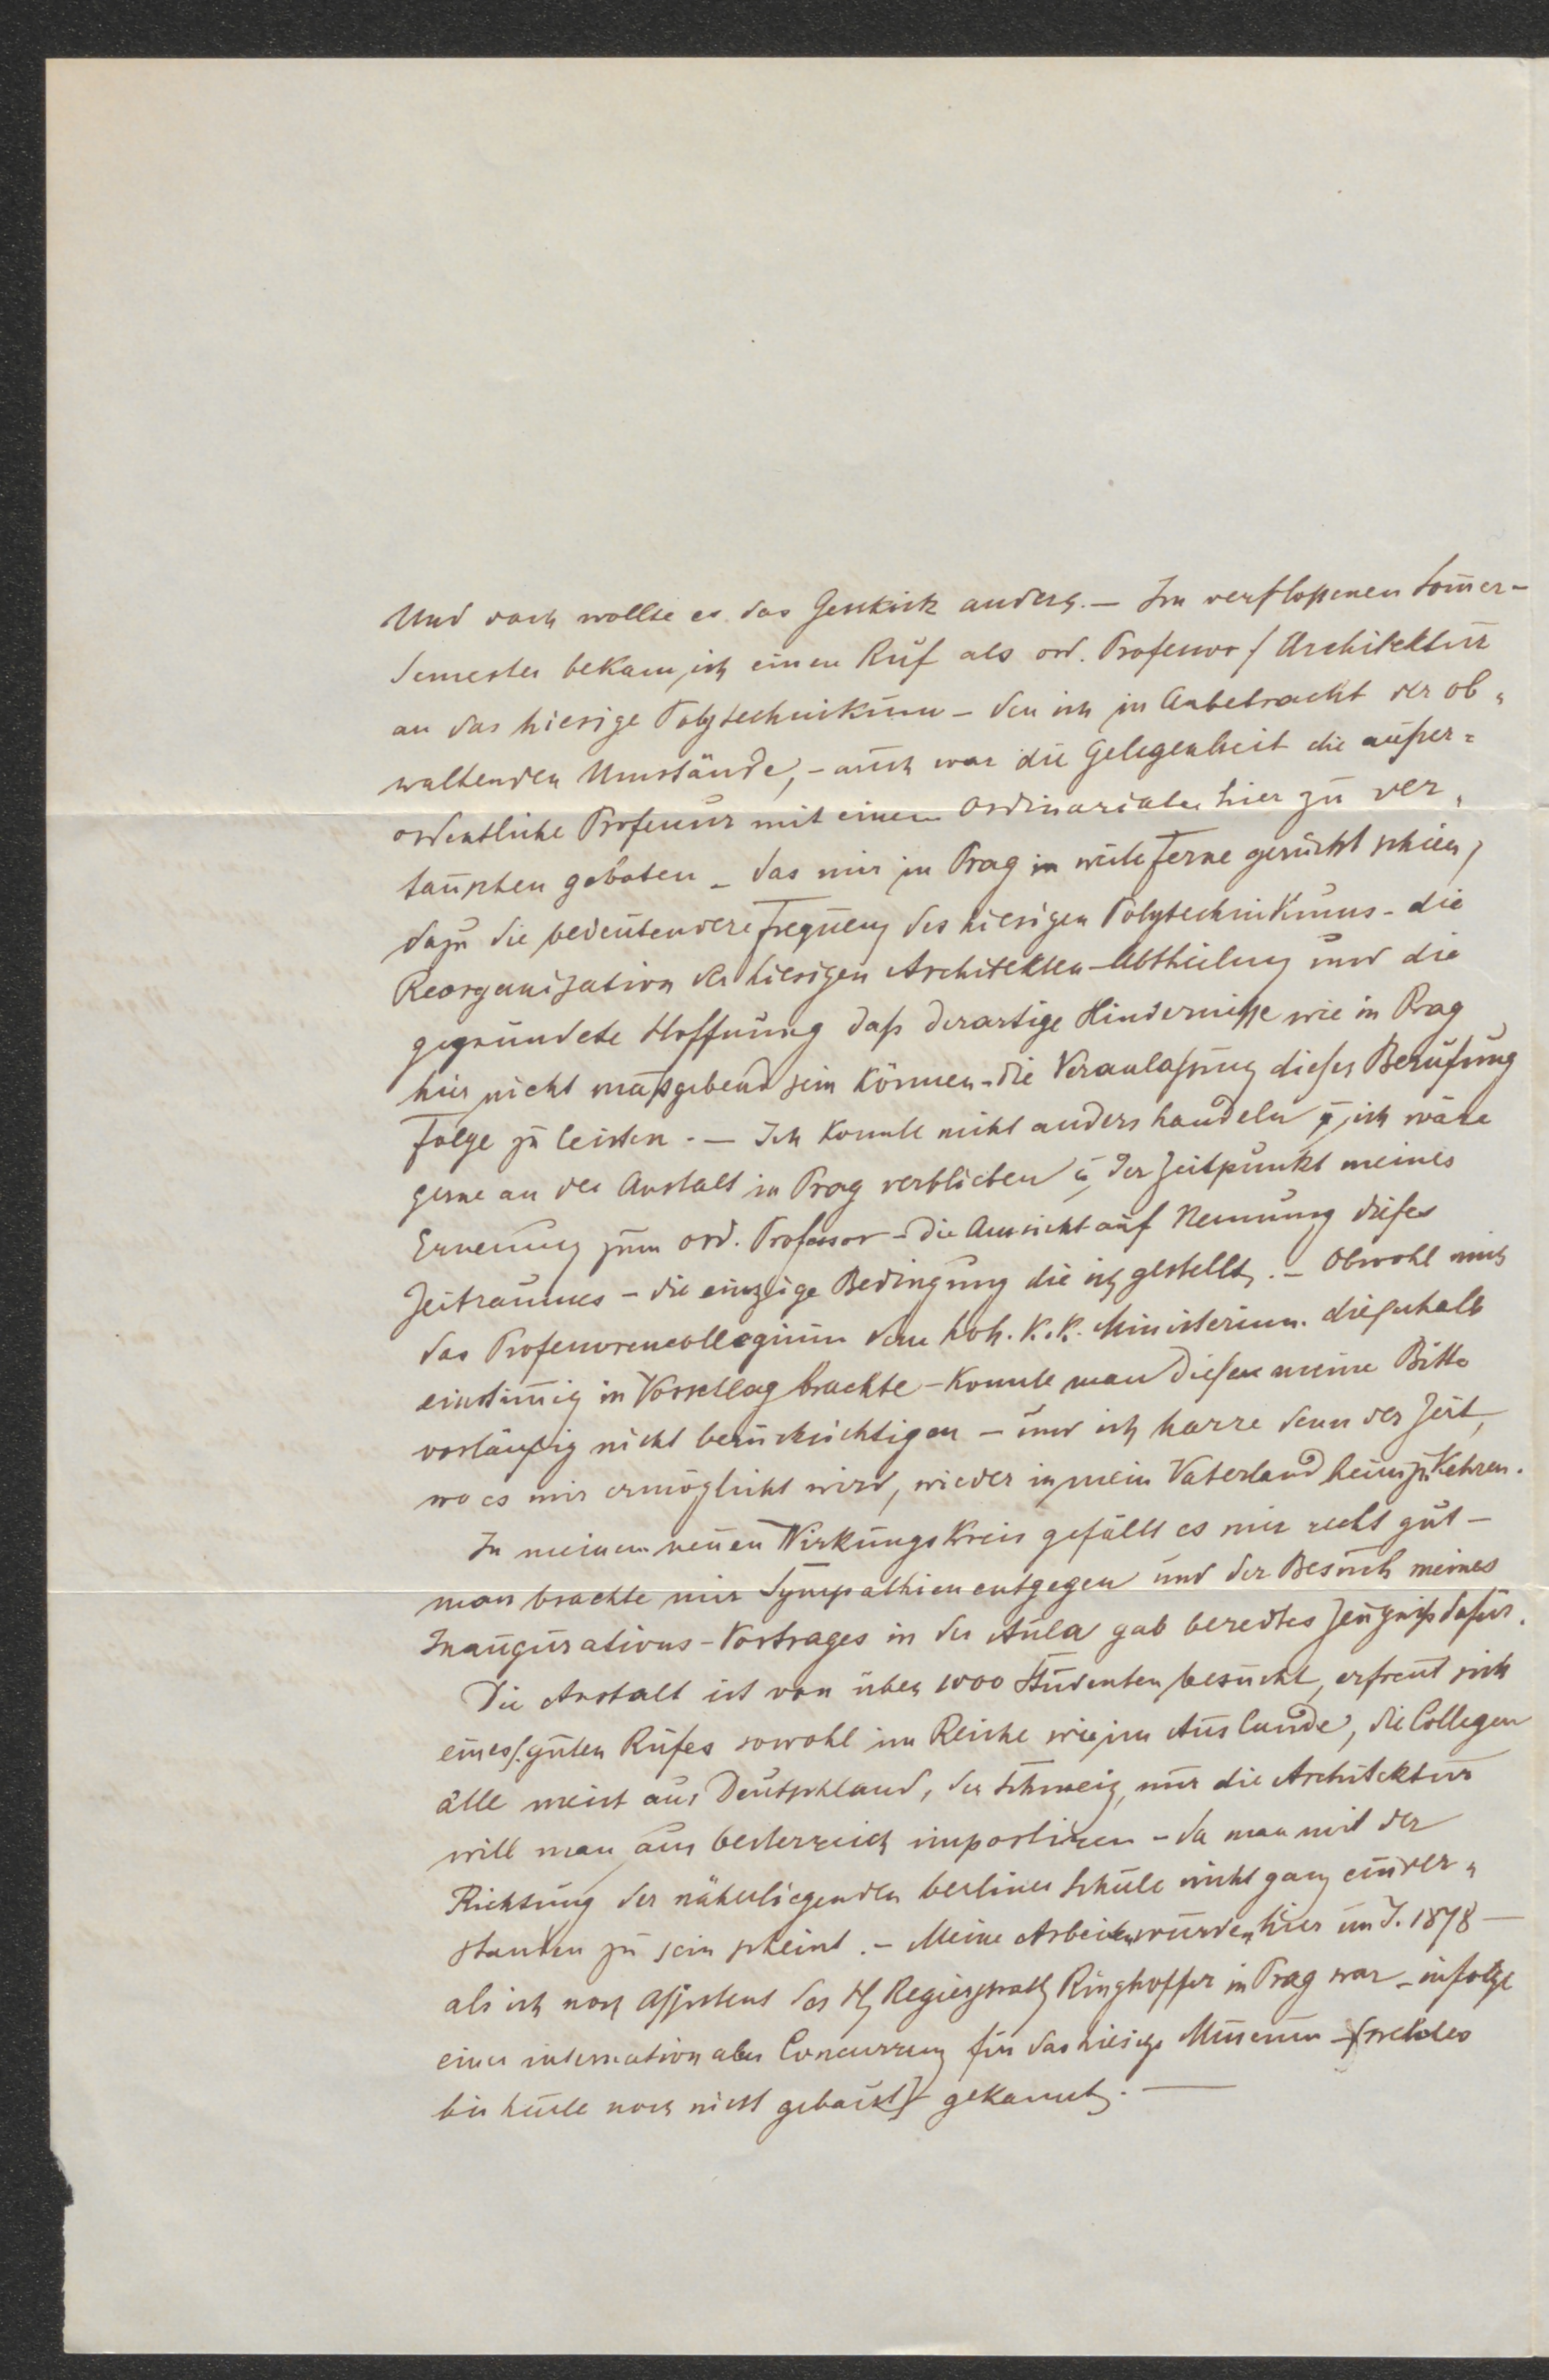 Und doch wollte es das Geschick anders. — Im verfloßenen Som̅er-
Semester bekam ich einen Ruf als ord. Professor f Architektur
an das hiesige Polytechnikum – den ich in Anbetracht der ob„
waltenden Umstände, – auch war die Gelegenheit die außer=
ordentliche Professur mit einem Ordinariate hier zu ver„
tauschen geboten – das mir in Prag in weite Ferne gerückt schien,
dazu die bedeutendere Frequenz des hiesigen Polytechnikums – die
Reorganisation der hiesigen Architekten-Abtheilung und die
gegründete Hoffnung daß derartige Hindernisse wie in Prag
hier nicht maßgebend sein können – die Veranlaßung dieser Berufung
Folge zu leisten. — Ich konnte nicht anders handeln u ich wäre
gerne an der Anstalt in Prag verblieben u der Zeitpunkt meines
Ernen̅ung zum ord. Professor – die Aussicht auf Nennung dieses
Zeitraumes – die einzige Bedingung die ich gestellt. – Obwohl mich
das Professorencollegium dem hoh. k.k. Ministerium dießenhalb
einstim̅ig in Vorschlag brachte – konnte man diese meine Bitte
vorläufig nicht berücksichtigen – und ich harre denn der Zeit,
wo es mir ermöglicht wird, wieder in mein Vaterland heimzukehren.
In meinem neuen Wirkungskreis gefällt es mir recht gut –
man brachte mir Sympathien entgegen und der Besuch meines
Inaugurations-Vortrages in der Aula gab beredtes Zeugniß dafür.
Die Anstalt ist von über 1000 Studenten besucht, erfreut sich
eines s. guten Rufes sowohl im Reiche wie im Auslande, die Collegen
alle meist aus Deutschland, der Schweiz, nur die Architektur
will man aus Oesterreich importiren – da man mit der
Richtung der näherliegenden berliner Schule nicht ganz einver„
standen zu sein scheint. – Meine Arbeiten wurden hier im J. 1878 —
als ich noch Assistent des H Regiergsrath Ringhoffer in Prag war – infolge
einer internationalen Concurrenz für das hiesige Museum – (welches
bis heute noch nicht gebaut) – gekannt. —